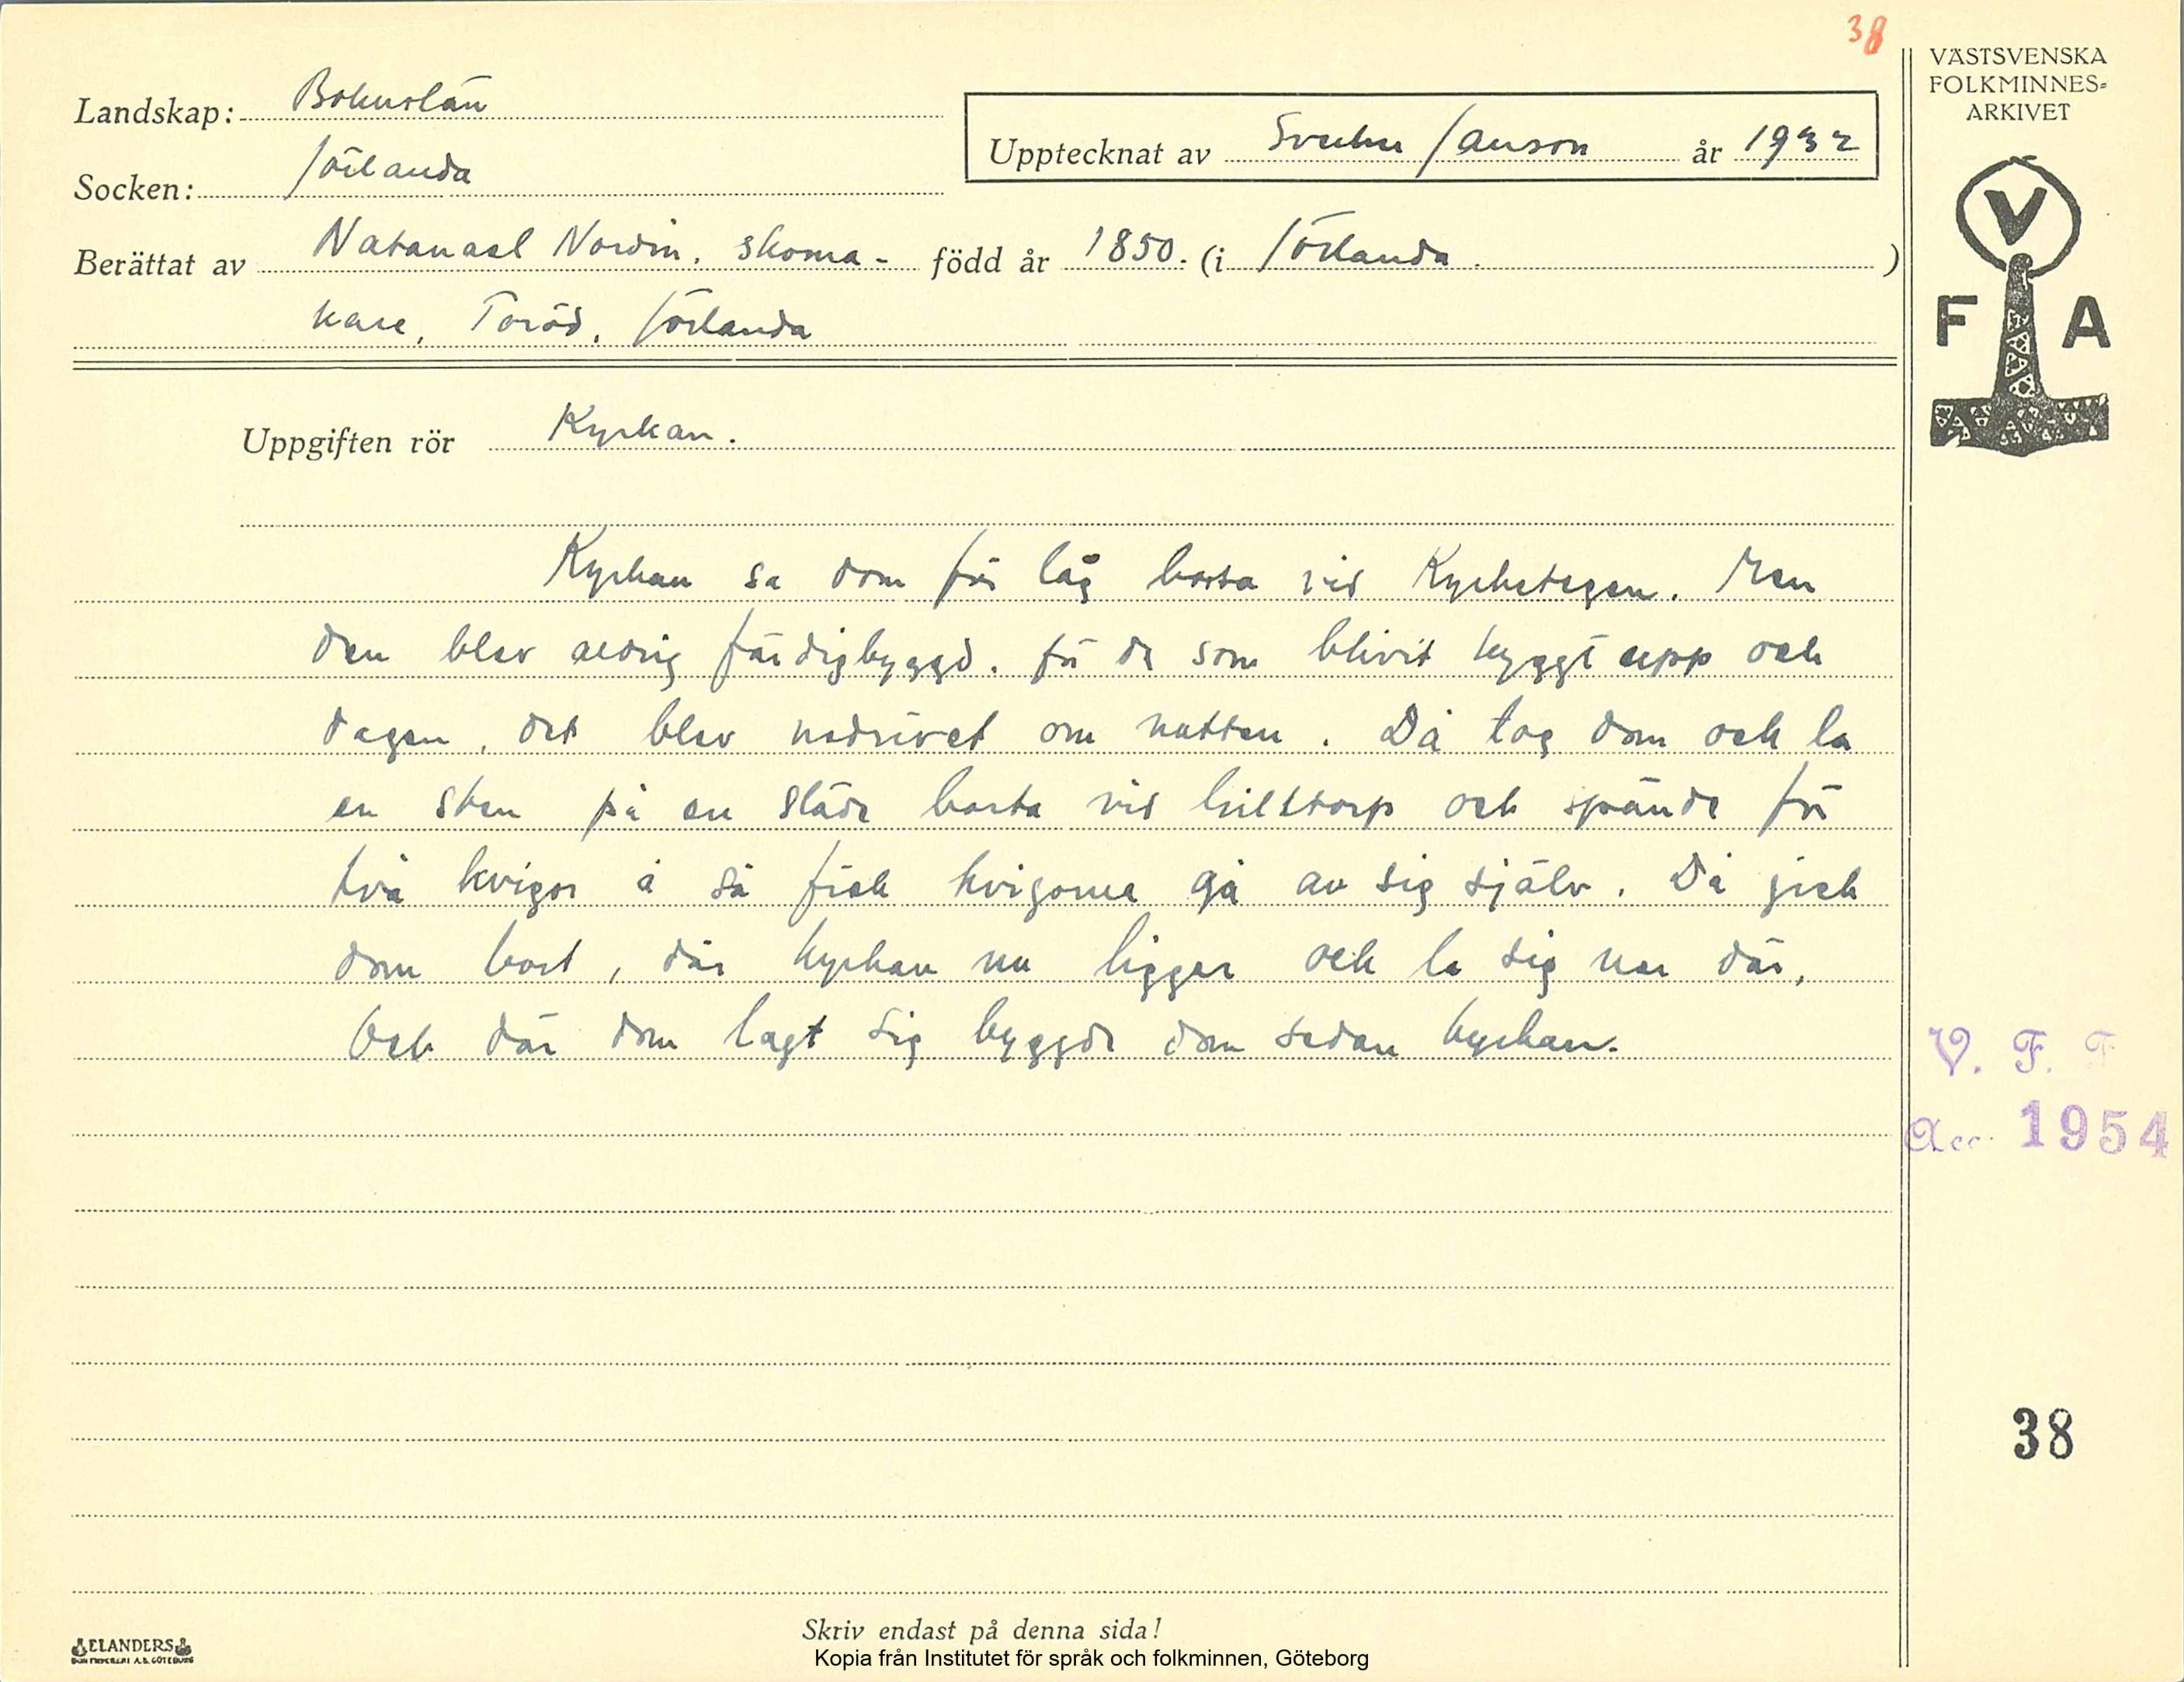 38
VÄSTSVENSKA
FOLKMINNES-
ARKIVET
Landskap: Bohuslän
Upptecknat av Sven Janson år 1932
Socken: Jörlanda
Berättat av Natanael Nordin, skoma- född år 1850. (i Jörlanda.)
kare, Toröd, Jörlanda
V
F A
Uppgiften rör Kyrkan.
Kyrkan sa dom för låg borta vid Kyrketegen. Men
den blev aldrig färdigbyggd. för de som blivit byggt upp och
dagen, det blev nedrivet om natten. Då tog dom och la
en sten på en släde borta vid och spände för
två kvigor å så fick kvigorna gå av sig själv. Då gick
dom bort, där kyrkan nu ligger och la sig ner där.
Och där dom lagt sig byggde dom sedan kyrkan.
V. F. F
Acc. 1954
38
Skriv endast på denna sida!
ELANDERS
BOKTRYCKERI A.B. GÖTEBORG
Kopia från Institutet för språk och folkminnen, Göteborg